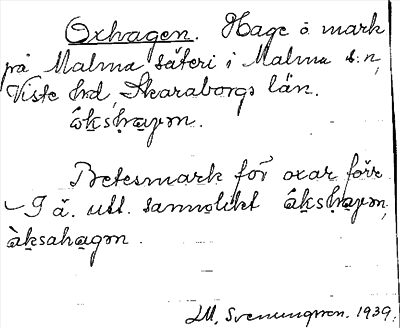 Oxhagen. Hage å mark
på Malma säteri i Malma s:n,
Viste hrd, Skaraborgs län.
åksha̱gən.
Betesmark för oxar förr
I ä. utt. sannolikt åksha̱gən,
àksahagən.
Svenungsson. 1939.